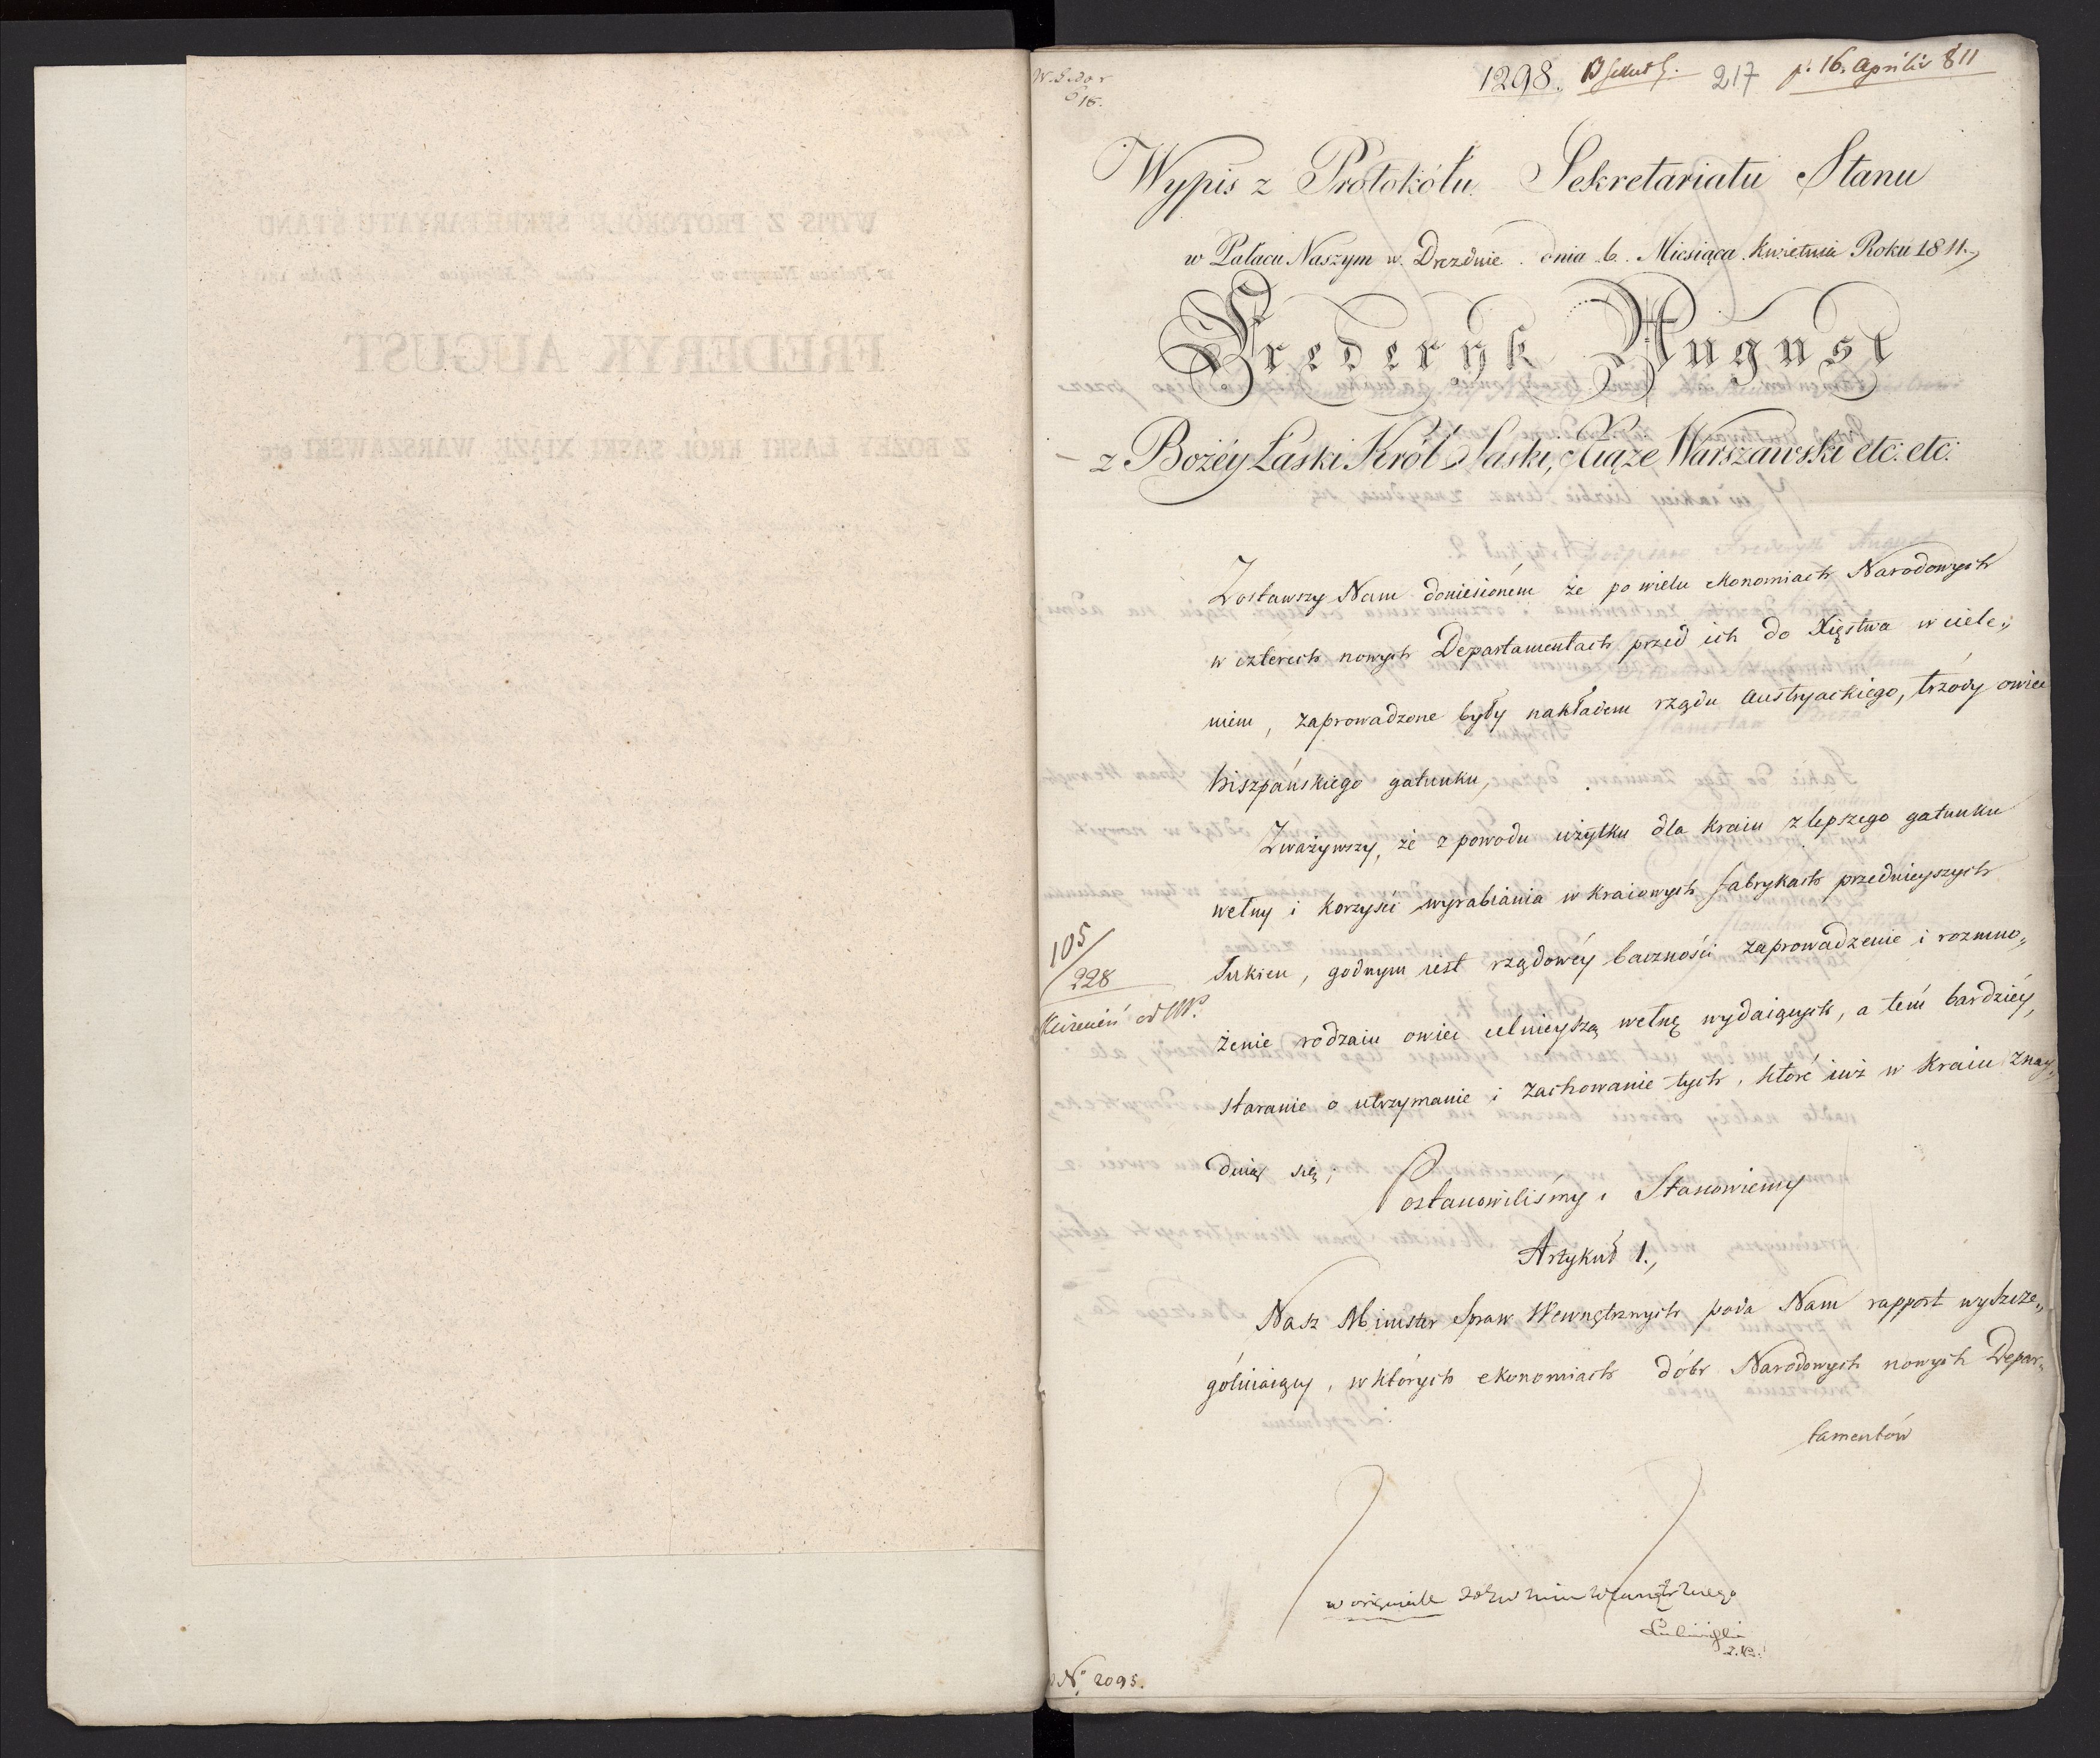 1298. 217 p. 16. Aprilis 811
Wypis z Protokółu Sekretariatu Stanu
w Pałacu Naszym w Dreźdnie dnia 6. Miesiąca Kwietnia Roku 1811.
Frederyk August
z Bożéy Łaski Król Saski, Xiąże Warszawski etc: etc:
Zostawszy Nam doniesioném że po wielu ekonomiach Narodowych
w czterech nowych Departamentach przed ich do Xięstwa wciele„
niem, zaprowadzone były nakładem rządu Austryackiego, trzody owiec
hiszpańskiego gatunku,
Zważywszy, że z powodu użytku dla kraiu z lepszego gatunku
wełny i korzyści wyrabiania w kraiowych fabrykach przednieyszych
Sukien, godnym iest rządowéy baczności zaprowadzenie i rozmno„
żenie rodzaiu owiec celnieyszą wełnę wydaiących, a tém bardziéy,
staranie o utrzymanie i zachowanie tych, które iuż w Kraiu znay„
duią się;
Postanowiliśmy i Stanowiemy
Artykuł 1.,
Nasz Minister Spraw Wewnętrznych poda Nam rapport wyszcze„
gólniaiący, w których ekonomiach dóbr Narodowych nowych Depar„
tamentów
105/228
w originale
No 2095.